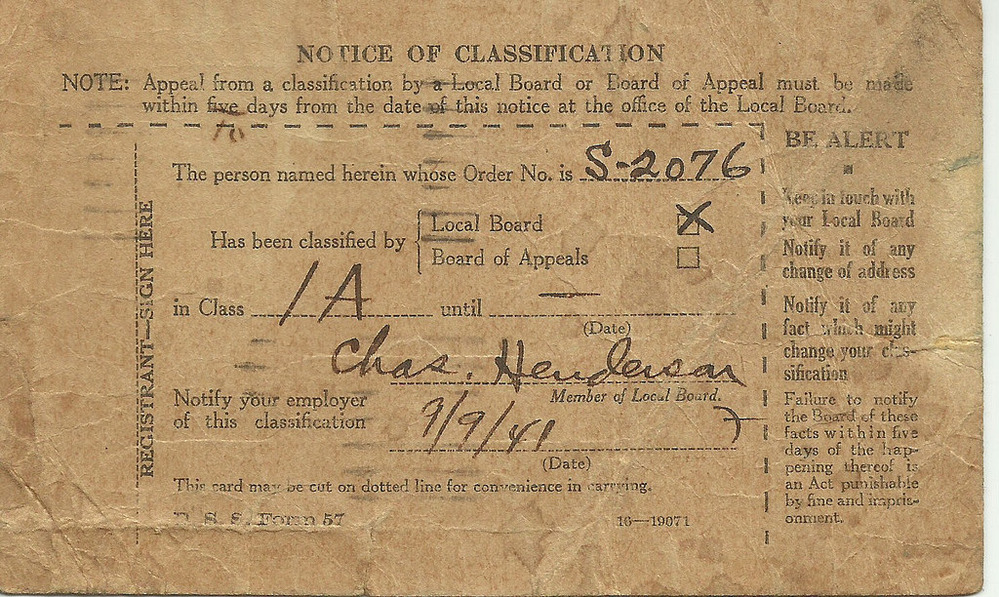 NOTICE OF CLASSIFICATION
NOTE: Appeal from a classification by a Local Board or Board of Appeal must be made
within five days from the date of this notice at the office of the Local Board.
The person named herein whose Order No. is S-2076
Has been classified by
Local Board X
Board of Appeals
in Class 1A until —
(Date)
Chas. Henderson
Member of Local Board.
Notify your employer
of this classification
9/9/41
(Date)
This card may be cut on dotted line for convenience in carrying.
D. S. S. Form 57
16—19071
REGISTRANT—SIGN HERE
BE ALERT
Keep in touch with
your Local Board
Notify it of any
change of address
Notify it of any
fact which might
change your clas-
sification
Failure to notify
the Board of these
facts within five
days of the hap-
pening thereof is
an Act punishable
by fine and impris-
onment.